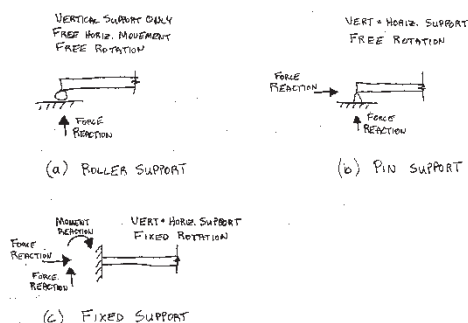 VERTICAL SUPPORT ONLY
FREE HORIZ. MOVEMENT
FREE ROTATION
FORCE
REACTION
(a) ROLLER SUPPORT
VERT + HORIZ. SUPPORT
FREE ROTATION
FORCE
REACTION
FORCE
REACTION
(b) PIN SUPPORT
MOMENT
REACTION
VERT + HORIZ. SUPPORT
FIXED ROTATION
FORCE
REACTION
FORCE
REACTION
(c) FIXED SUPPORT